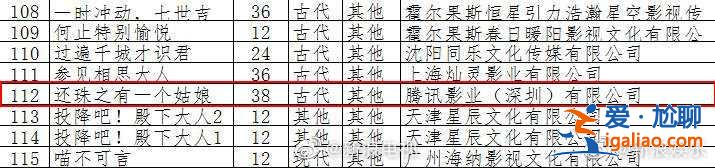 108 一时冲动，七世吉 36 古代 其他 霍尔果斯恒星引力浩瀚星空影视传
109 何止特别愉悦 12 古代 其他 霍尔果斯春日暖阳影视文化有限公
110 过遍千城才识君 24 古代 其他 沈阳同乐文化传媒有限公司
111 参见相思大人 36 古代 其他 上海灿灵影业有限公司
112 还珠之有一个姑娘 38 古代 其他 腾讯影业（深圳）有限公司
113 投降吧！殿下大人2 12 其他 其他 天津星辰文化有限公司
114 投降吧！殿下大人1 12 其他 其他 天津星辰文化有限公司
115 喵不可言 12 现代 其他 广州海纳影视文化有限公司
爱·尬聊
igaliao.com